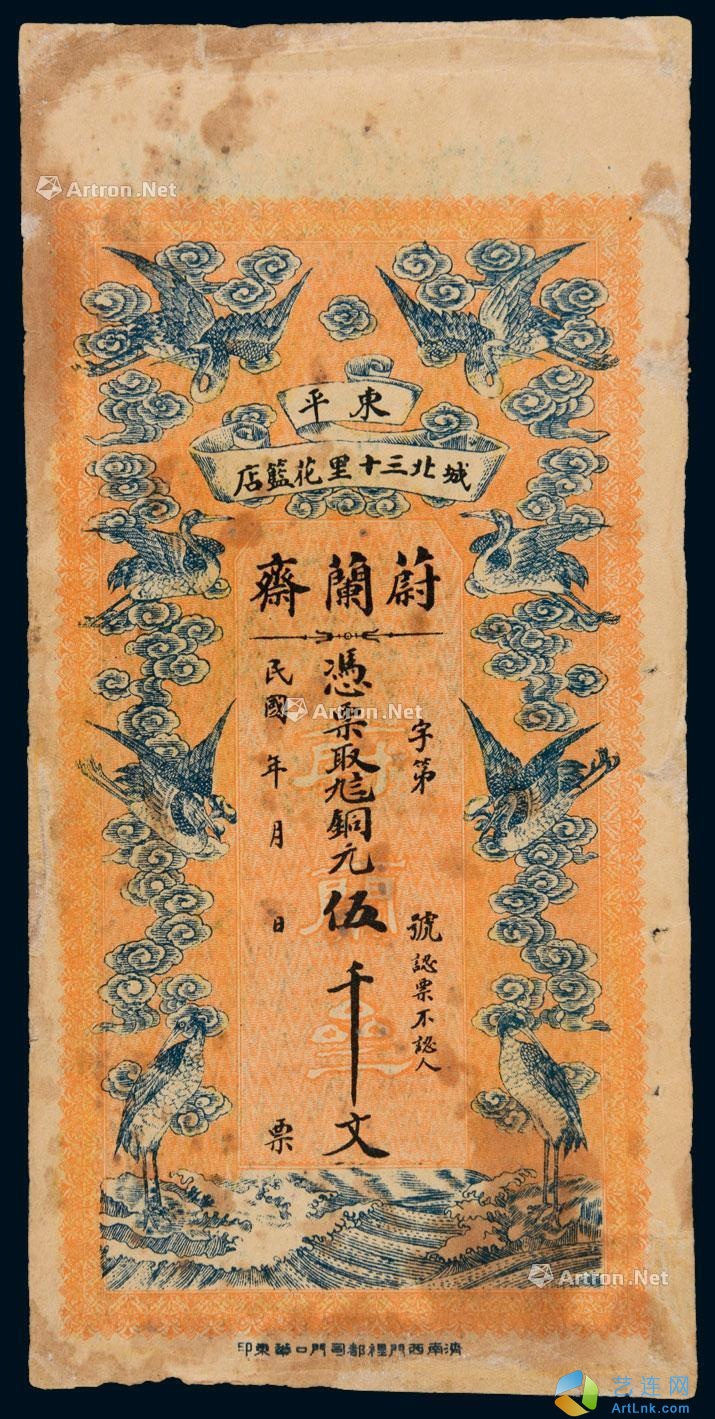 Artron.Net
東平
城北三十里花籃店
蔚蘭齋
字第 號認票不認人
憑票取銅元伍千文
民國 年 月 日 票
Artron.Net
蔚
蘭
Artron.Net
濟南西門裡都司門口華東印
艺连网
ArtLnk.com